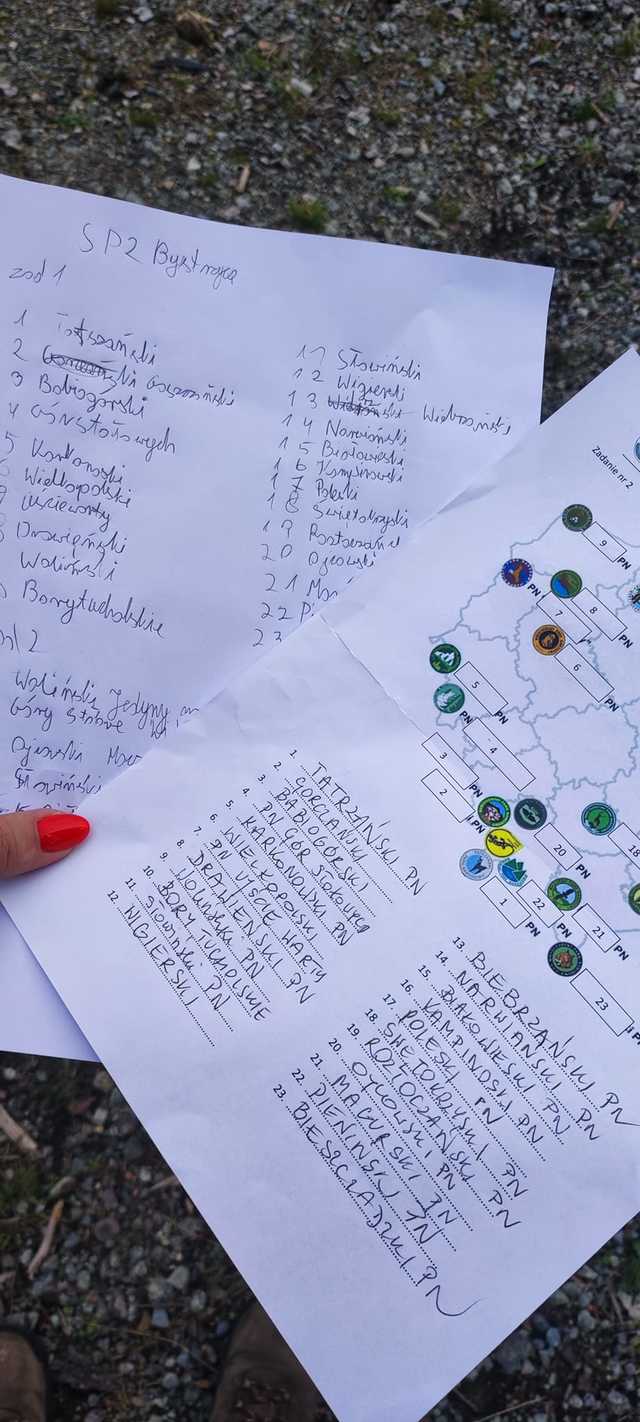 SP2 Bystrzyca
zad 1
1 Tatrzański
2 Gorczański
3 Babiogórski
4 Gór Stołowych
5 Karkonoski
Wielkopolski
Ujście warty
Drawieński
Woliński
Bory tucholskie
11 Słowiński
12 Wigierski
13 Biebrzański
14 Narwiański
15 Białowieski
16 Kampinowski
17 Poleski
18 Świetokrzyski
19 Roztoczań
20 Ojcowski
21
22
23
2
Woliński Jedyny
Góry Stołowe
Ojcowski
Słowiński
Zadanie nr 2
9 PN
PN
8 PN
7 PN
6 PN
5 PN
PN
4 PN
3 PN
2 PN
18
20 PN
22 PN
1 PN
21 PN
23 PN
1. TATRZAŃSKI PN
2. GORCZAŃSKI
3. BABIOGÓRSKI
4. PN GÓR Stołowych
5. KARKONOWSKI PN
6. WIELKOPOLSKI
7. PN UJŚCIE WARTY
8. DRAWIEŃSKI PN
9. Woliński PN
10. BORY TUCHOLSKIE
11. Słowiński PN
12. WIGIERSKI
13. BIEBRZAŃSKI PN
14. NARWIAŃSKI PN
15. BIAŁOWIESKI PN
16. KAMPINOSKI PN
17. POLESKI PN
18. ŚWIĘTOKRZYSKI PN
19. ROZTOCZAŃSKI PN
20. OJCOWSKI PN
21. MAGURSKI PN
22. PIENIŃSKI PN
23. BIESZCZADZKI PN